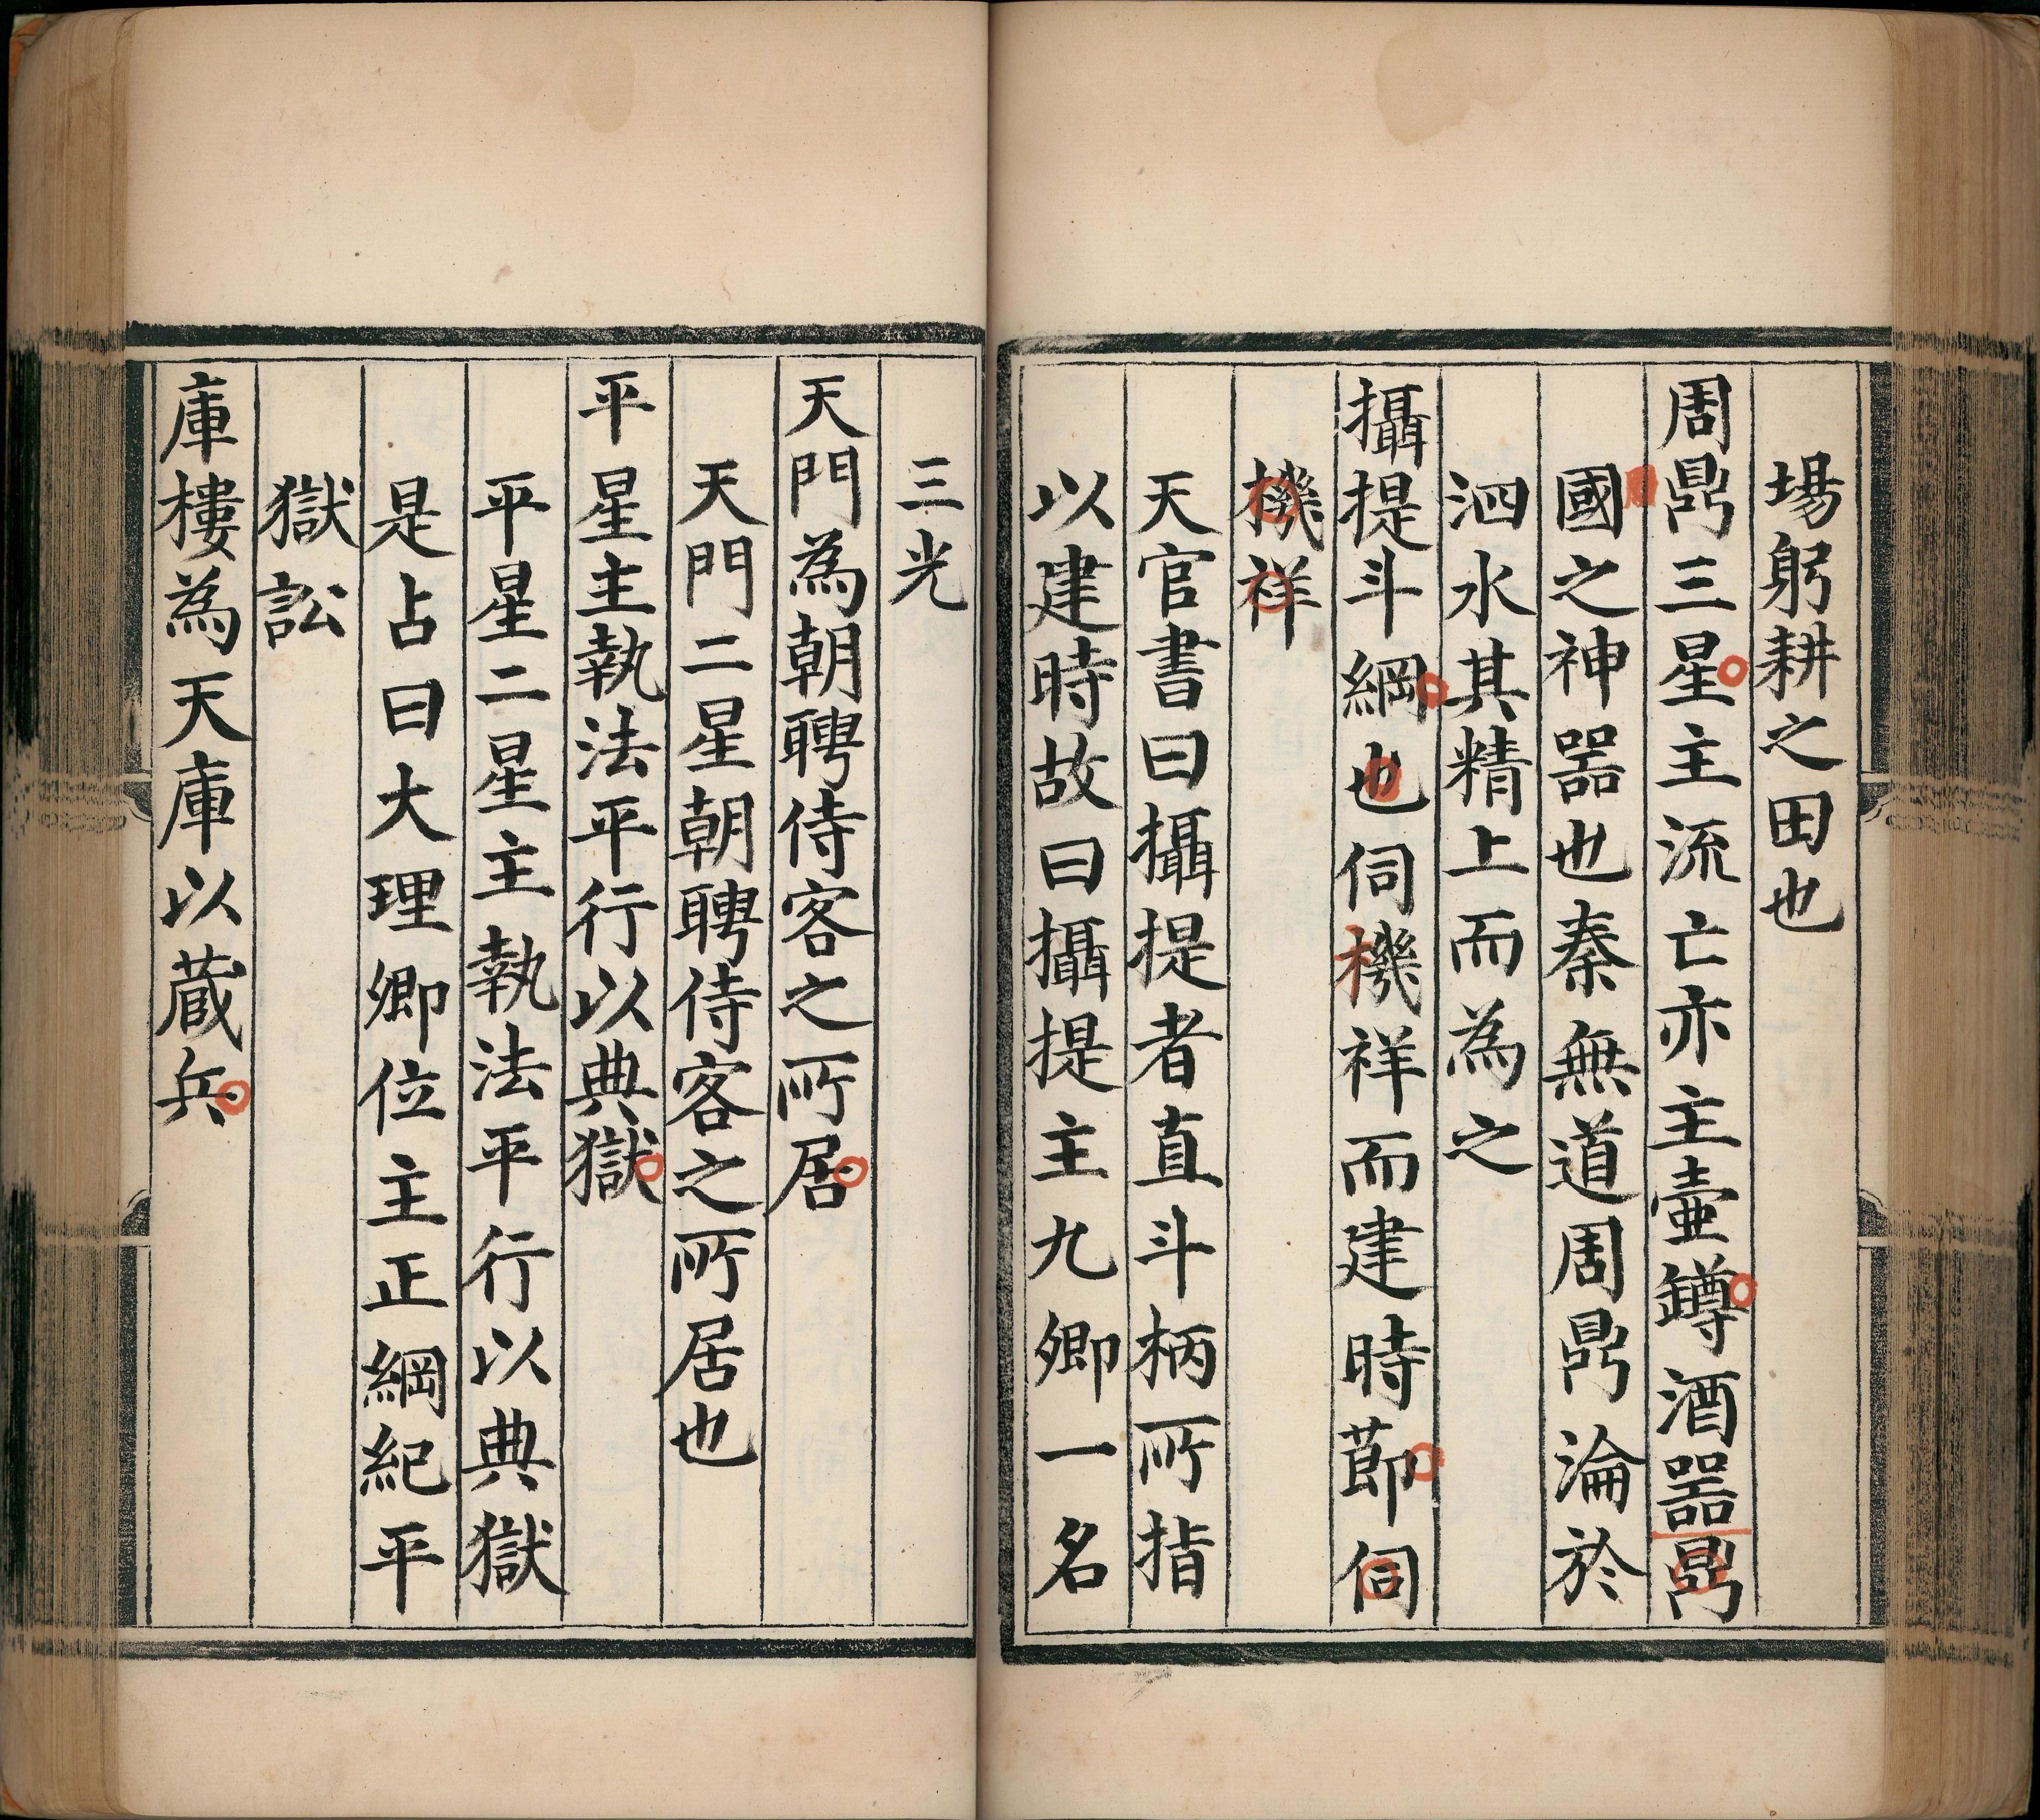 場躬耕之田也
周鼎三星主流亡亦主壷罇酒器鼎
國之神器也秦無道周鼎淪於
泗水其精上而為之
攝提斗綱也伺機祥而建時節伺
機祥
天官書曰攝提者直斗柄所指
以建時故曰攝提主九卿一名
三光
天門為朝聘侍客之所居
天門二星朝聘侍客之所居也
平星主執法平行以典獄
平星二星主執法平行以典獄
是占曰大理卿位主正綱紀平
獄訟
庫樓為天庫以蔵兵